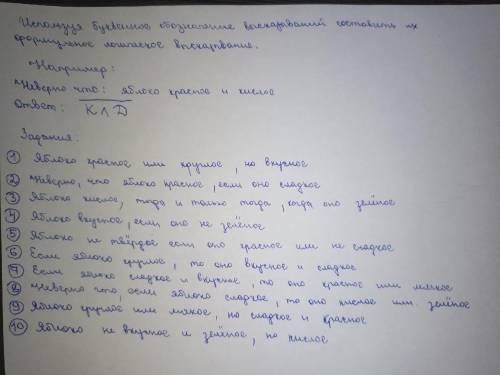 Используя буквенное обозначение высказываний составить их
формульное логическое высказывание.
Например:
Неверно что: яблоко красное и кислое
Ответ: K ∧ D
Задания:
① Яблоко красное или круглое, но вкусное
② Неверно, что яблоко красное, если оно сладкое
③ Яблоко кислое, тогда и только тогда, когда оно зелёное
④ Яблоко вкусное, если оно не зелёное
⑤ Яблоко не твёрдое если оно красное или не сладкое
⑥ Если яблоко круглое, то оно вкусное и сладкое
⑦ Если яблоко сладкое и вкусное, то оно красное или мягкое
⑧ Неверно что, если яблоко сладкое, то оно кислое или зелёное
⑨ Яблоко круглое или мягкое, но сладкое и красное
⑩ Яблоко не вкусное и зелёное, но кислое